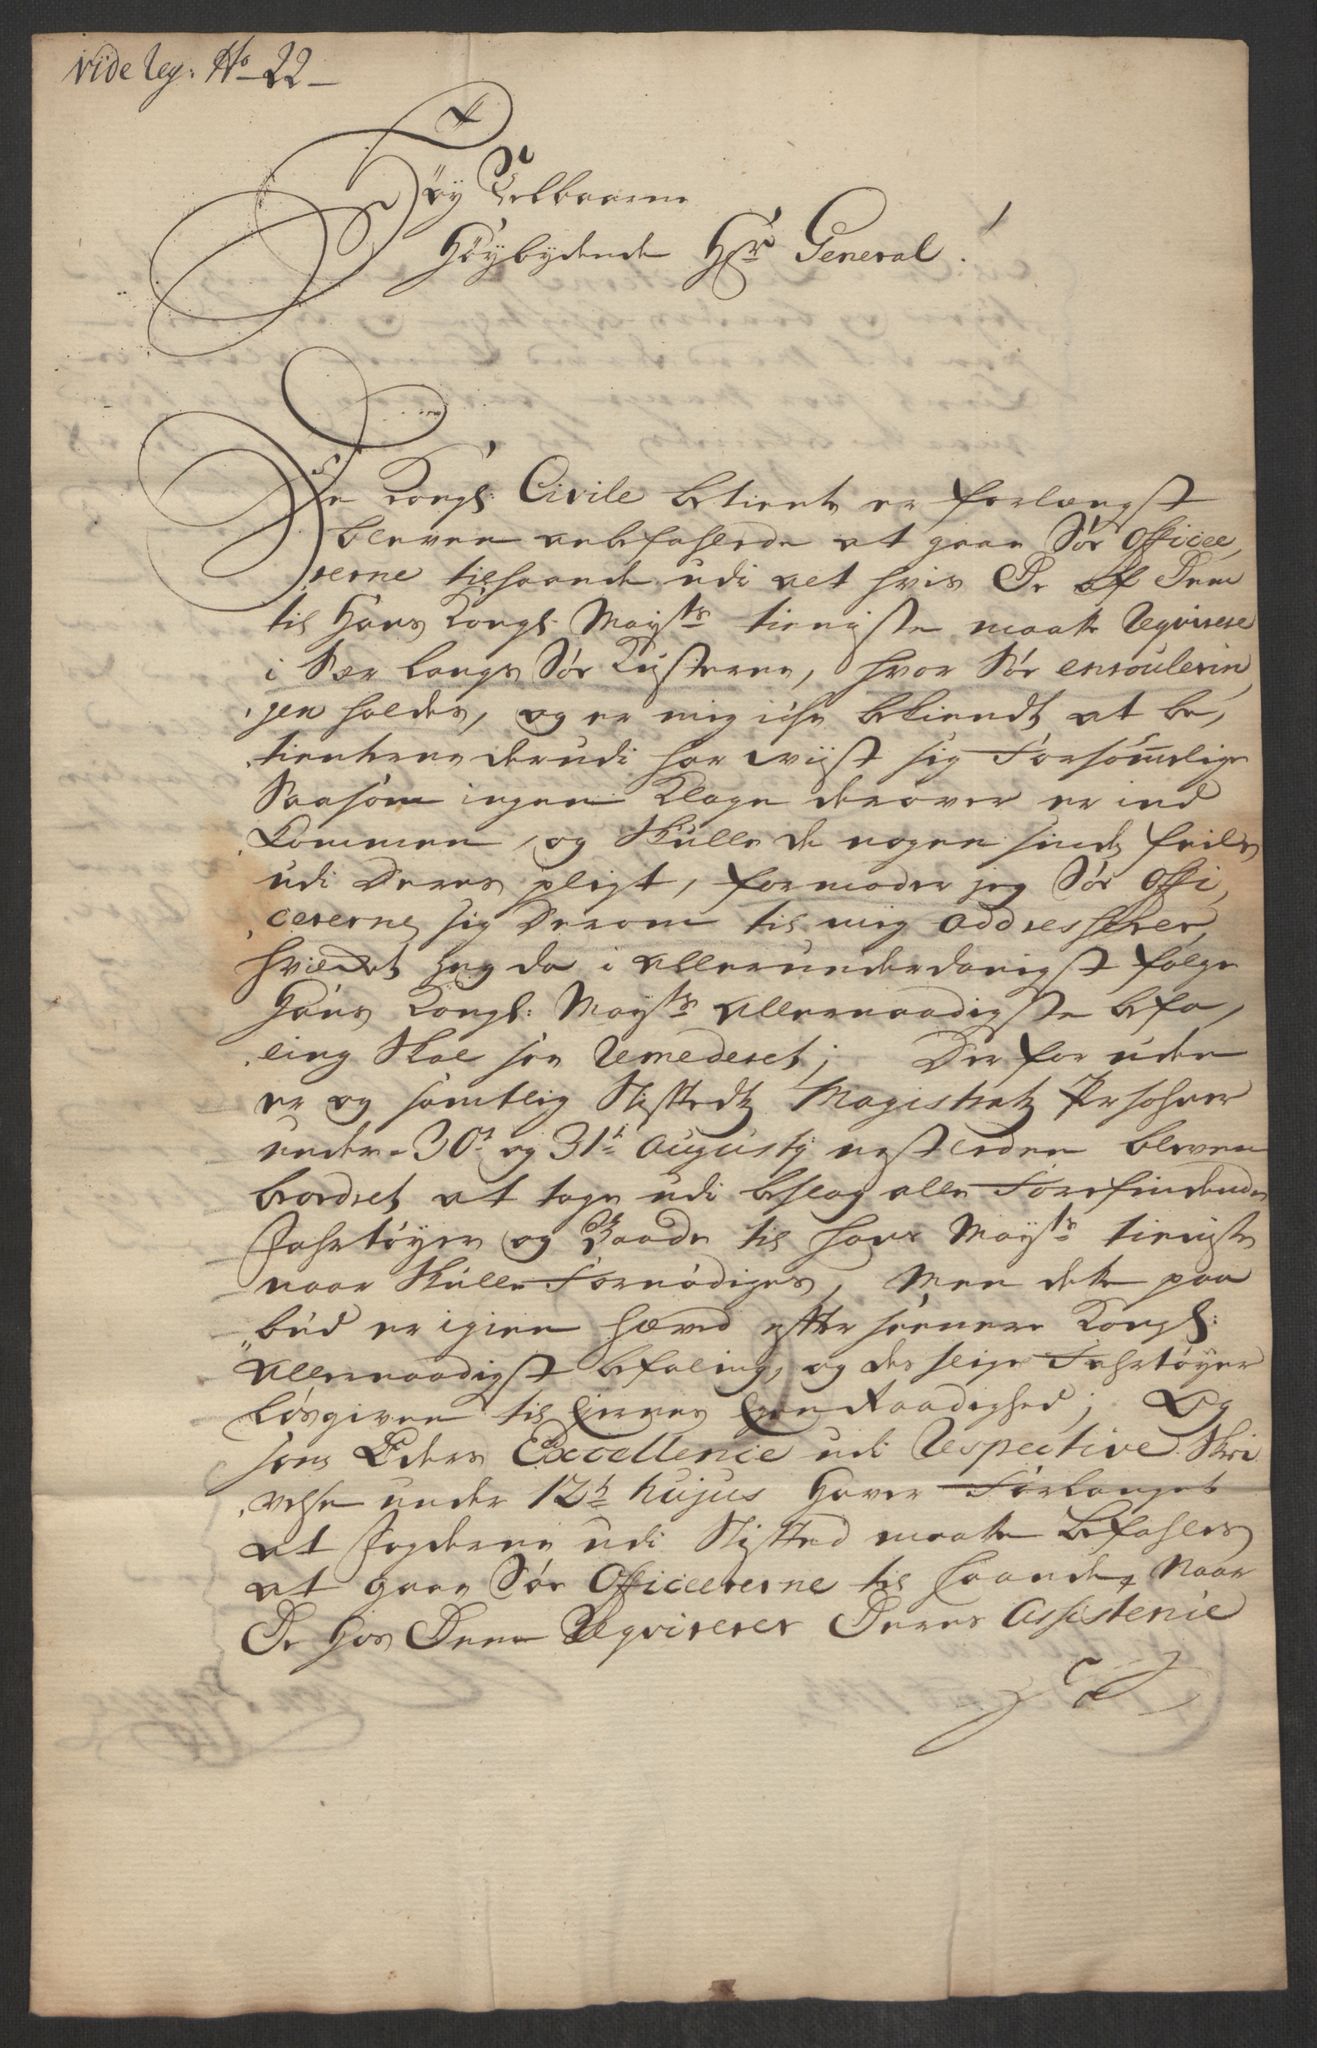 vide reg: No 22
Høy Velbaarne
Høybydende Hr General!
De Kongl: Civile betiente er forlængst
blevne anbefahlede at gaae Søe Officee,
rerne tilhaande udi alt hvis De af Dem
til Hans Kongl: Mayts tieniste maatte Reqvirere
i Sær langs Søe Kusterne, hvor Søe enroulerin,
gen holdes, og er mig icke bekiendt at be,
tienterne derudi har viist sig Forsømmelige
Saasom ingen Klage derover er ind
Kommen, og Skulle de nogen sinde feile
udi Deres pligt, formoder jeg Søe Offi,
cererne sig Derom til mig addresserer,
hvilcket Jeg da i allerunderdanigst følge
Hans Kongl: Mayts allernaadigste befa,
ling Skal see Remederet; Der for uden
er og samtlig Stiftets Magistrats Persohner
under 30te og 31te Augustj nestleden bleven
beordret at tage udi beslag alle Forefindende
Fahrtøyer og Baade til hans Mayts tieniste
naar Skulle Fornødiges, Men dette paa
bud er igien hæved efter seenere Kongl:
allernaadigst befaling, og deslige Fahrtøyer
Løsgiven til Eiernes Egen Raadighed; Og
som Eders Excellence udi Respective Skri
velse under 12te hujus haver Forlanget
at Fogderne udi Stiftet maatte befahles
at gaae Søe Officeererne til haande, Naar
De hos Dem Reqvirerer Deres Assistence